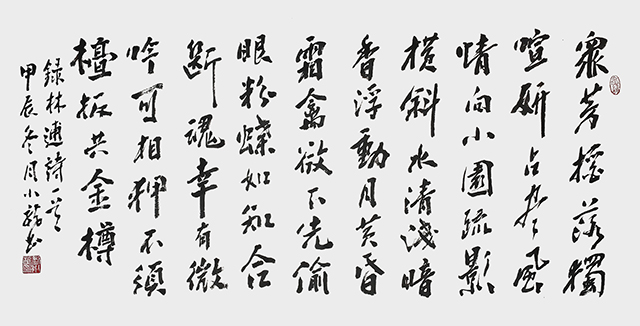 眾芳搖落獨
暄妍占尽風
情向小園疏影
橫斜水清淺暗
香浮動月黃昏
霜禽欲下先偷
眼粉蝶如知合
斷魂幸有微
吟可相狎不須
檀板共金樽
録林逋詩一首
甲辰冬月小書